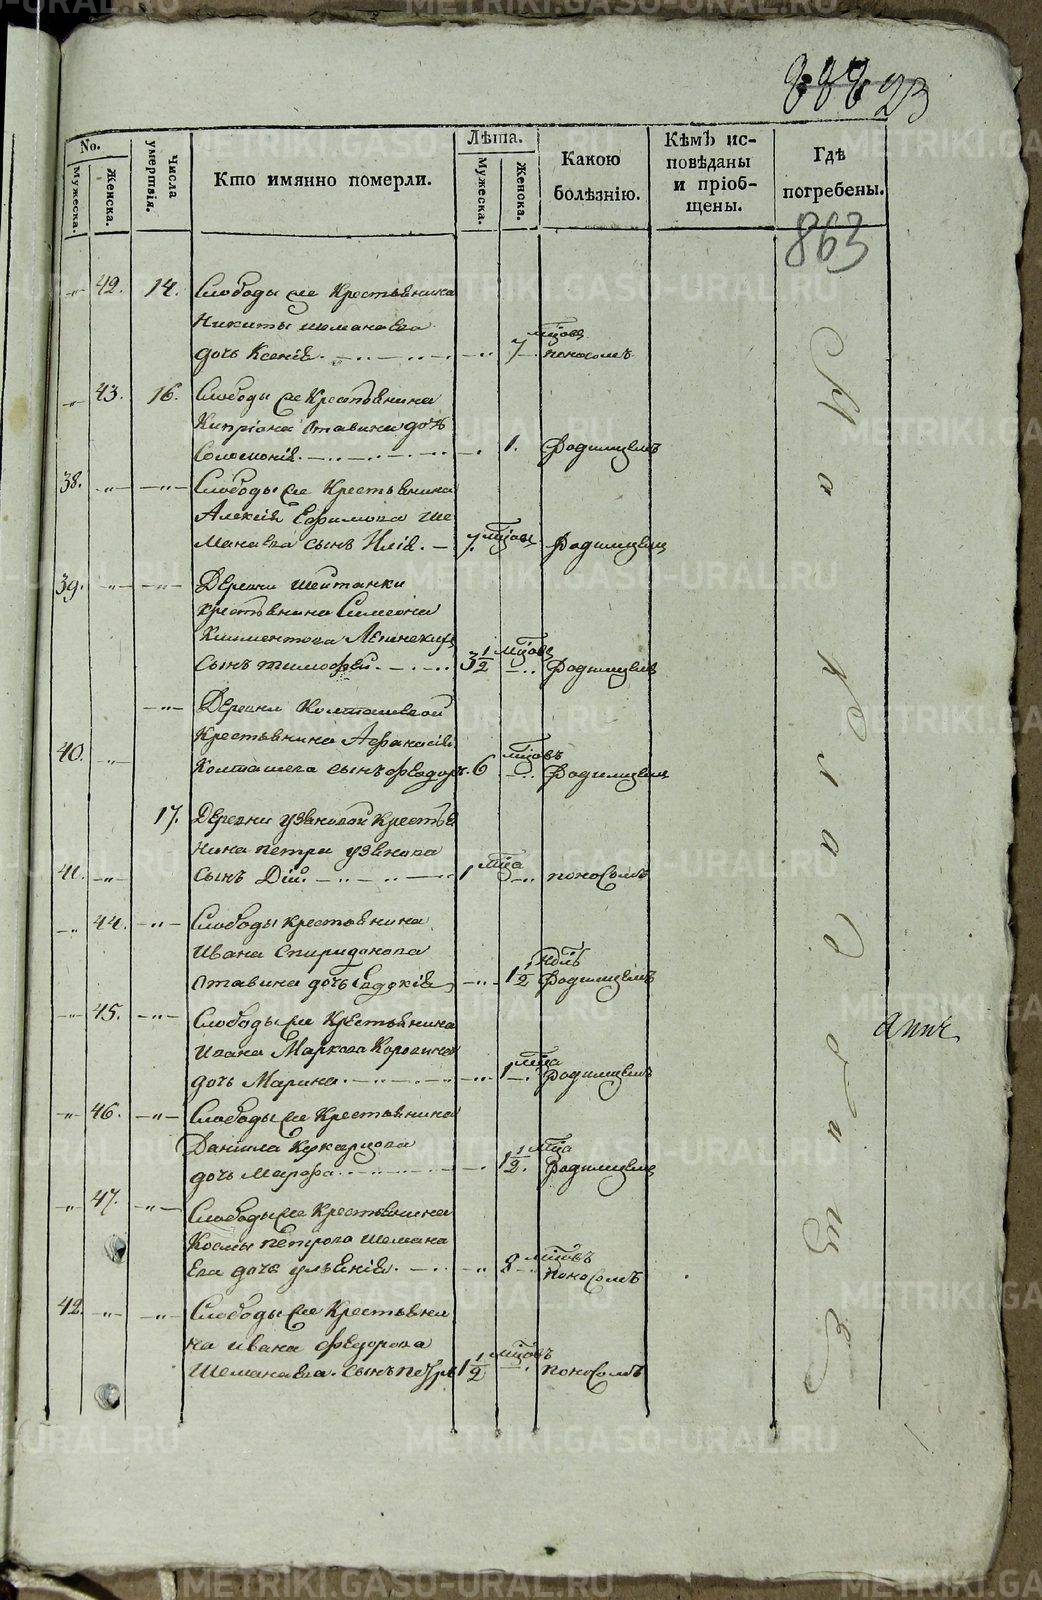 888 23
No.
Мужеска.
Женска.
Числа умертвія.
Кто имянно померли.
Лѣта.
Мужеска.
Женска.
Какою болѣзнію.
Кѣмъ исповѣданы и пріобщены.
Гдѣ погребены.
863
42. 14. Слободы сее Крестьянина
Никиты шеманаева
дочь Ксенія. 7 мцовъ поносомъ
43. 16. Слободы сее Крестьянина
Кипріана Отавина дочь
Соломонія. 1. Родимцемъ
38. Слободы сее Крестьянина
Алексія Ефимова Ше
манаева сынъ Илія. 7. мцовъ Родимцемъ
39. Деревни шейтанки
крестьянина Симеона
Климентова
сынъ тимофей. 3 1/2 мцовъ Родимцемъ
Деревни Колташевой
Крестьянина Афанасія
40. Колташева сынъ феодоръ. 6 мцовъ Родимцемъ
17. Деревни узяновой крестья
нина петра узянова
41. сынъ Дій. 1 мца поносомъ
44. Слободы крестьянина
Ивана Спиридонова
Отавина дочь Евдокія 1 1/2 Родимцемъ
45. Слободы сее Крестьянина
Ивана Маркова Коровина
дочь Марина. 1 мца Родимцемъ
46. Слободы сее Крестьянина
Даніила
дочь Марфа. 1 1/2. мца Родимцемъ
47. Слободы сее Крестьянина
Космы петрова шемана
ева дочь ульянія. 8 мцовъ поносомъ
42. Слободы сее Крестьяни
на ивана феодорова
Шеманаева. сынъ петръ 1 1/2 мцовъ поносомъ
METRIKI.GASO-URAL.RU